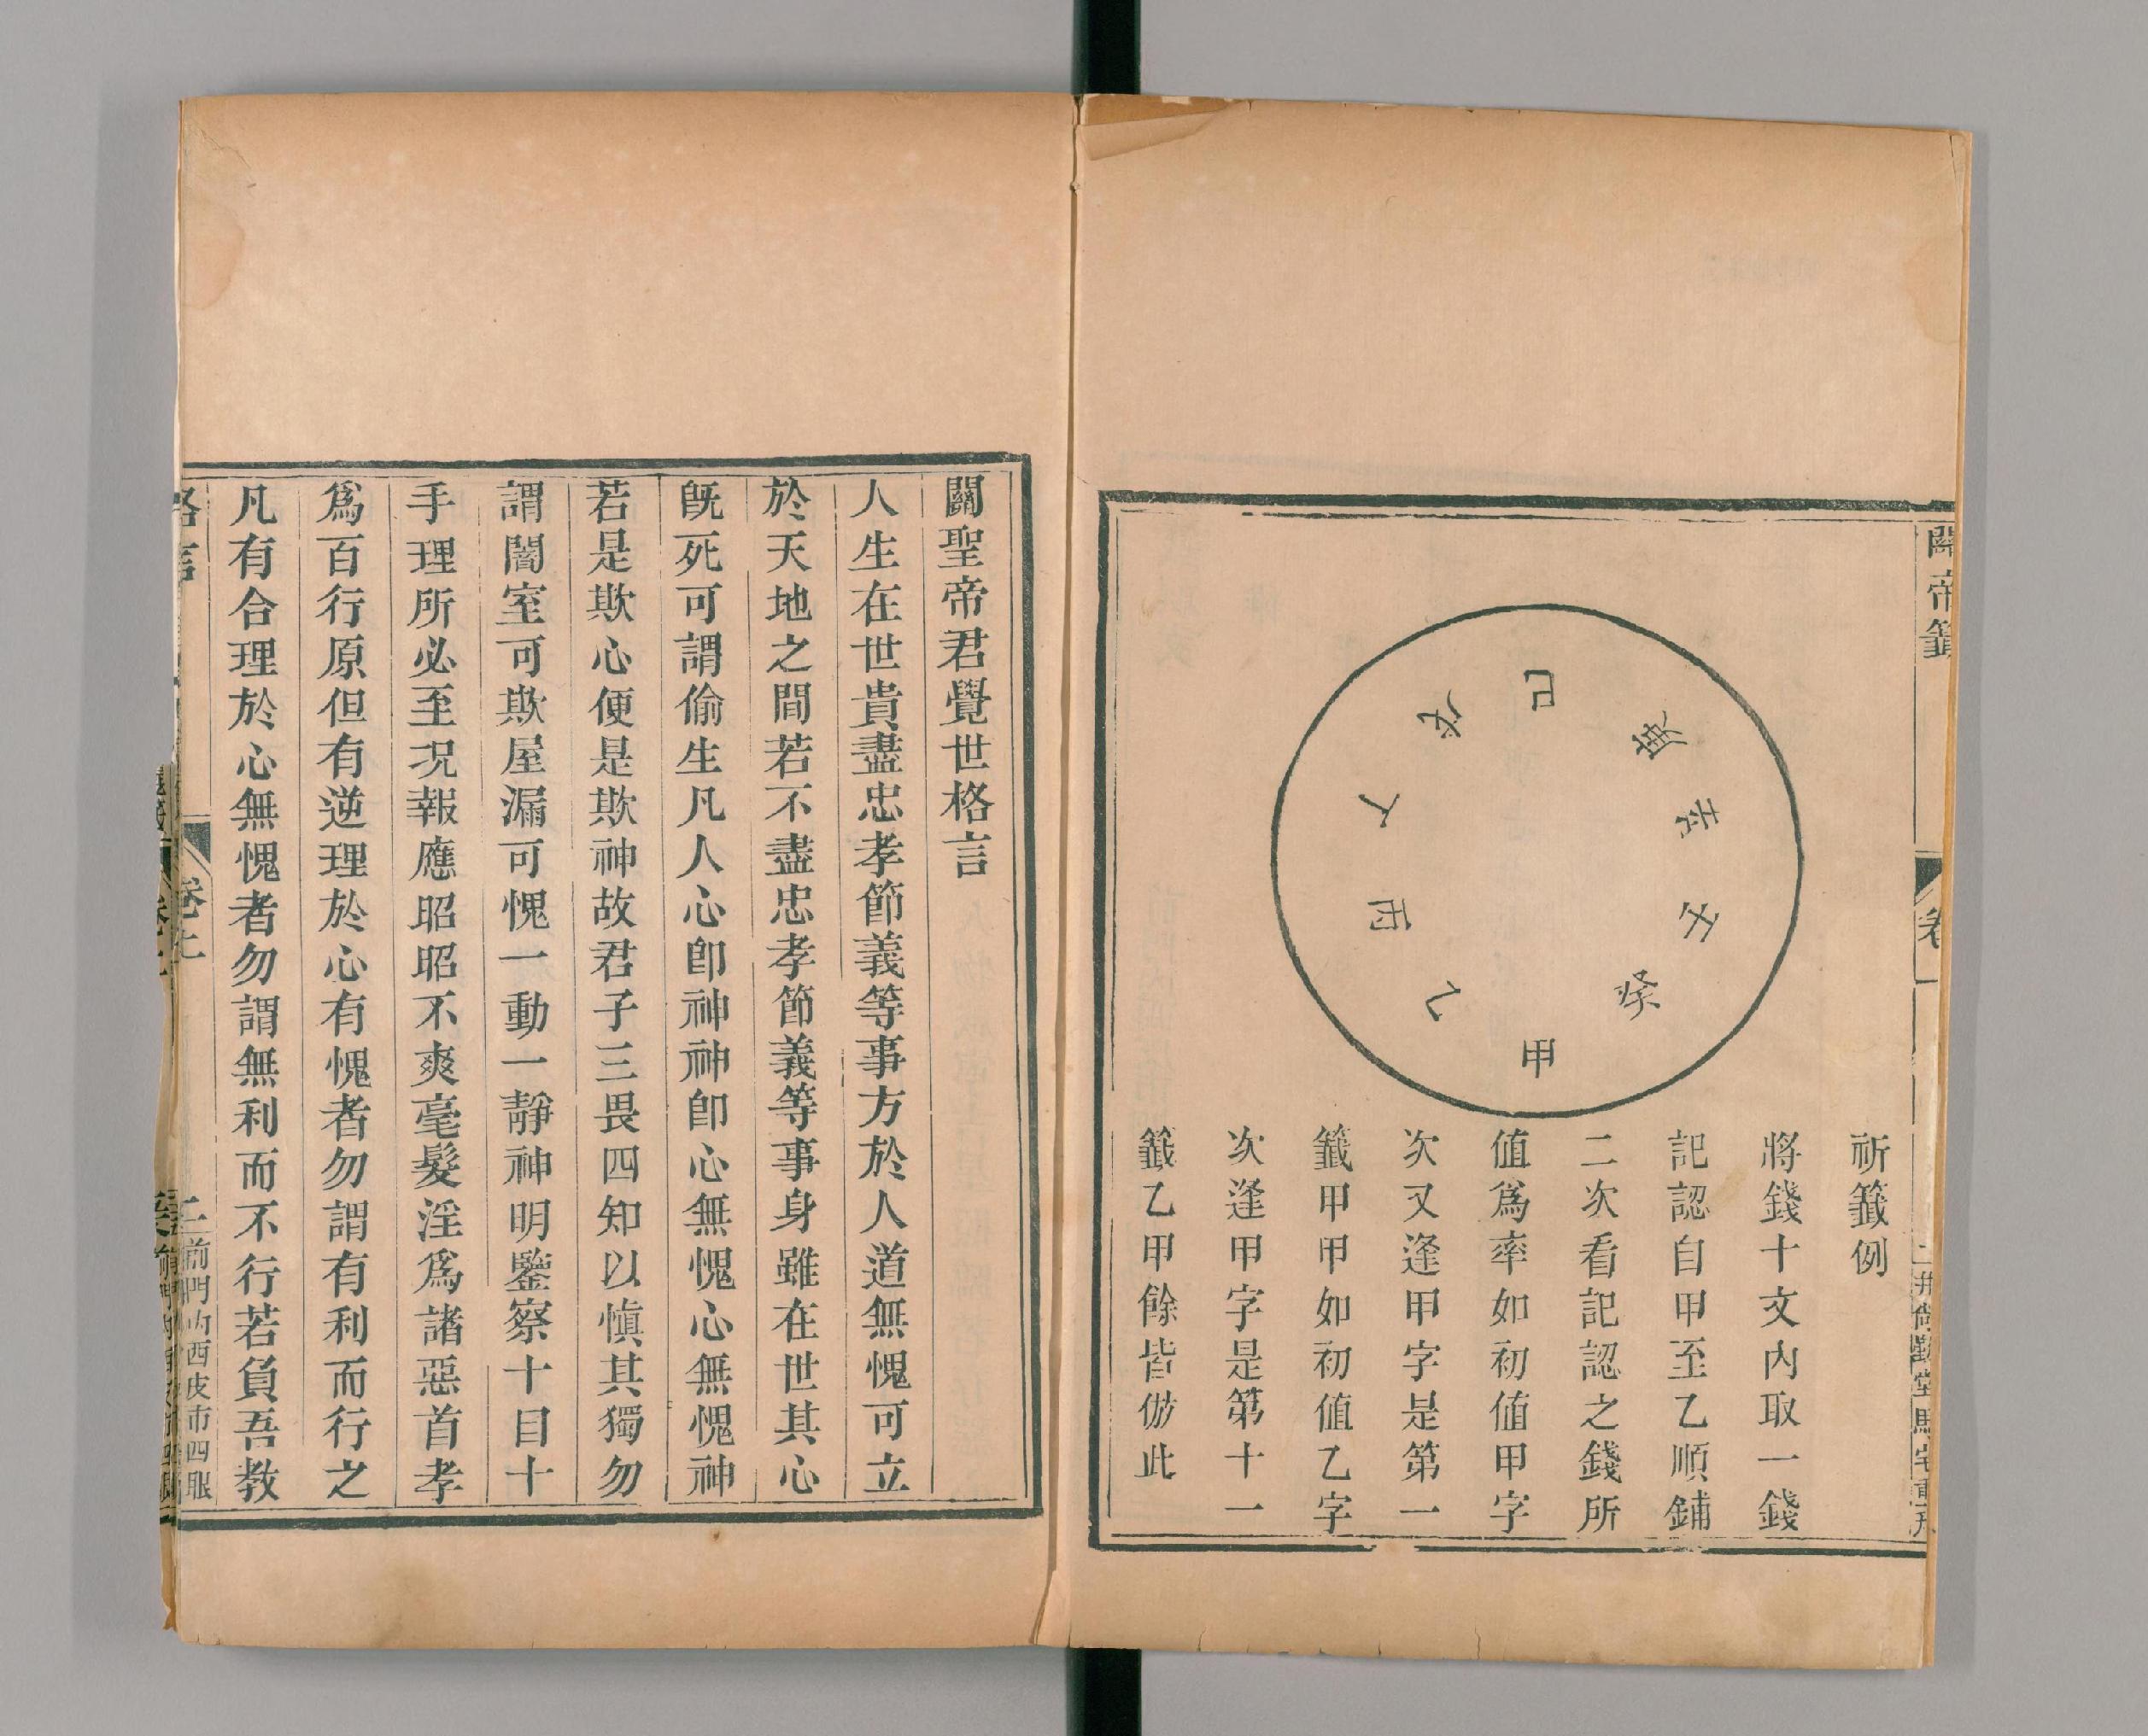 關帝籤
卷一
祈籤例
將錢十文內取一錢
記認自甲至乙順鋪
二次看記認之錢所
值爲率如初值甲字
次又逢甲字是第一
籤甲甲如初值乙字
次逢甲字是第十一
籤乙甲餘皆倣此
甲
乙
丙
丁
戊
己
庚
辛
壬
癸
關聖帝君覺世格言
人生在世貴盡忠孝節義等事方於人道無愧可立
於天地之間若不盡忠孝節義等事身雖在世其心
旣死可謂偷生凡人心卽神神卽心無愧心無愧神
若是欺心便是欺神故君子三畏四知以愼其獨勿
謂闇室可欺屋漏可愧一動一靜神明鑒察十目十
手理所必至况報應昭昭不爽毫髮淫爲諸惡首孝
爲百行原但有逆理於心有愧者勿謂有利而行之
凡有合理於心無愧者勿謂無利而不行若負吾教
格言
卷上
二
前門內西皮市四眼